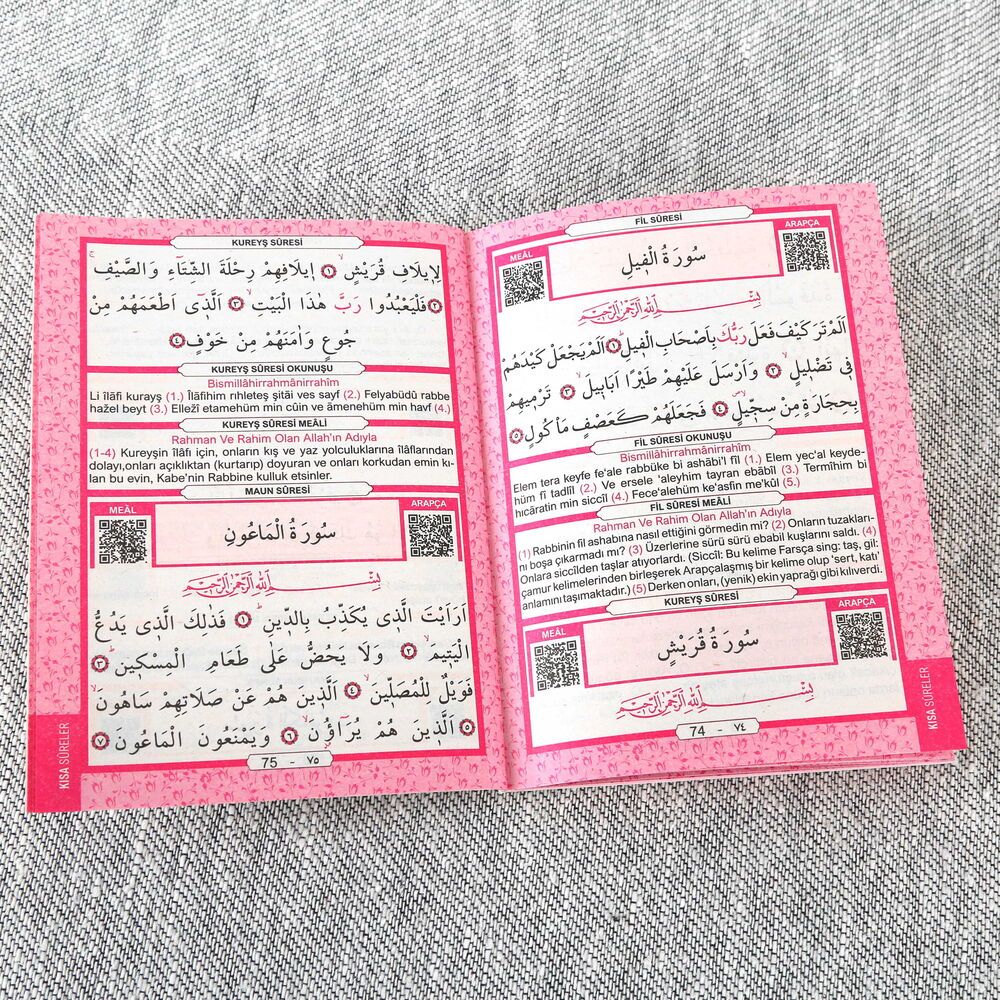 FİL SÛRESİ
MEÂL
ARAPÇA
سُورَةُ الْفٖيلِ
بِسْمِ اللّٰهِ الرَّحْمٰنِ الرَّحٖيمِ
اَلَمْ تَرَ كَيْفَ فَعَلَ رَبُّكَ بِاَصْحَابِ الْفٖيلِؕ ١ اَلَمْ يَجْعَلْ كَيْدَهُمْ
فٖى تَضْلٖيلٍۙ ٢ وَاَرْسَلَ عَلَيْهِمْ طَيْرًا اَبَابٖيلَۙ ٣ تَرْمٖيهِمْ
بِحِجَارَةٍ مِنْ سِجّٖيلٍۙ ٤ فَجَعَلَهُمْ كَعَصْفٍ مَاْكُولٍ ٥
FİL SÛRESİ OKUNUŞU
Bismillâhirrahmânirrahîm
Elem tera keyfe fe'ale rabbüke bi ashâbi'l fîl (1.) Elem yec'al keyde-
hüm fî tadlîl (2.) Ve ersele 'aleyhim tayran ebâbîl (3.) Termîhim bi
hıcâratin min siccîl (4.) Fece'alehüm ke'asfin me'kûl (5.)
FİL SÛRESİ MEÂLİ
Rahman Ve Rahim Olan Allah'ın Adıyla
(1) Rabbinin fil ashabına nasıl ettiğini görmedin mi? (2) Onların tuzakları-
nı boşa çıkarmadı mı? (3) Üzerlerine sürü sürü ebabil kuşlarını saldı. (4)
Onlara siccîlden taşlar atıyorlardı. (Siccîl: Bu kelime Farsça sing: taş, gil:
çamur kelimelerinden birleşerek Arapçalaşmış bir kelime olup 'sert, katı'
anlamını taşımaktadır.) (5) Derken onları, (yenik) ekin yaprağı gibi kılıverdi.
KUREYŞ SÛRESİ
MEÂL
ARAPÇA
سُورَةُ قُرَيْشٍ
بِسْمِ اللّٰهِ الرَّحْمٰنِ الرَّحٖيمِ
74 - ٧٤
KISA SÛRELER
KUREYŞ SÛRESİ
لِاٖيلَافِ قُرَيْشٍۙ ١ اٖيلَافِهِمْ رِحْلَةَ الشِّتَٓاءِ وَالصَّيْفِۚ
٢ فَلْيَعْبُدُوا رَبَّ هٰذَا الْبَيْتِۙ ٣ اَلَّذٖٓى اَطْعَمَهُمْ مِنْ
جُوعٍ وَاٰمَنَهُمْ مِنْ خَوْفٍ ٤
KUREYŞ SÛRESİ OKUNUŞU
Bismillâhirrahmânirrahîm
Li îlâfi kurayş (1.) Îlâfihim rıhleteş şitâi ves sayf (2.) Felyabüdû rabbe
hażel beyt (3.) Ellezî etamehüm min cûin ve âmenehüm min havf (4.)
KUREYŞ SÛRESİ MEÂLİ
Rahman Ve Rahim Olan Allah'ın Adıyla
(1-4) Kureyşin îlâfı için, onların kış ve yaz yolculuklarına îlâflarından
dolayı,onları açıklıktan (kurtarıp) doyuran ve onları korkudan emin kı-
lan bu evin, Kabe'nin Rabbine kulluk etsinler.
MAUN SÛRESİ
MEÂL
ARAPÇA
سُورَةُ الْمَاعُونِ
بِسْمِ اللّٰهِ الرَّحْمٰنِ الرَّحٖيمِ
اَرَاَيْتَ الَّذٖى يُكَذِّبُ بِالدّٖينِؕ ١ فَذٰلِكَ الَّذٖى يَدُعُّ
الْيَتٖيمَۙ ٢ وَلَا يَحُضُّ عَلٰى طَعَامِ الْمِسْكٖينِؕ ٣
فَوَيْلٌ لِلْمُصَلّٖينَۙ ٤ اَلَّذٖينَ هُمْ عَنْ صَلَاتِهِمْ سَاهُونَۙ
٥ اَلَّذٖينَ هُمْ يُرَٓاؤُ۫نَۙ ٦ وَيَمْنَعُونَ الْمَاعُونَ ٧
75 - ٧٥
KISA SÛRELER